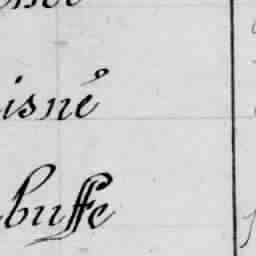 isné
buffe